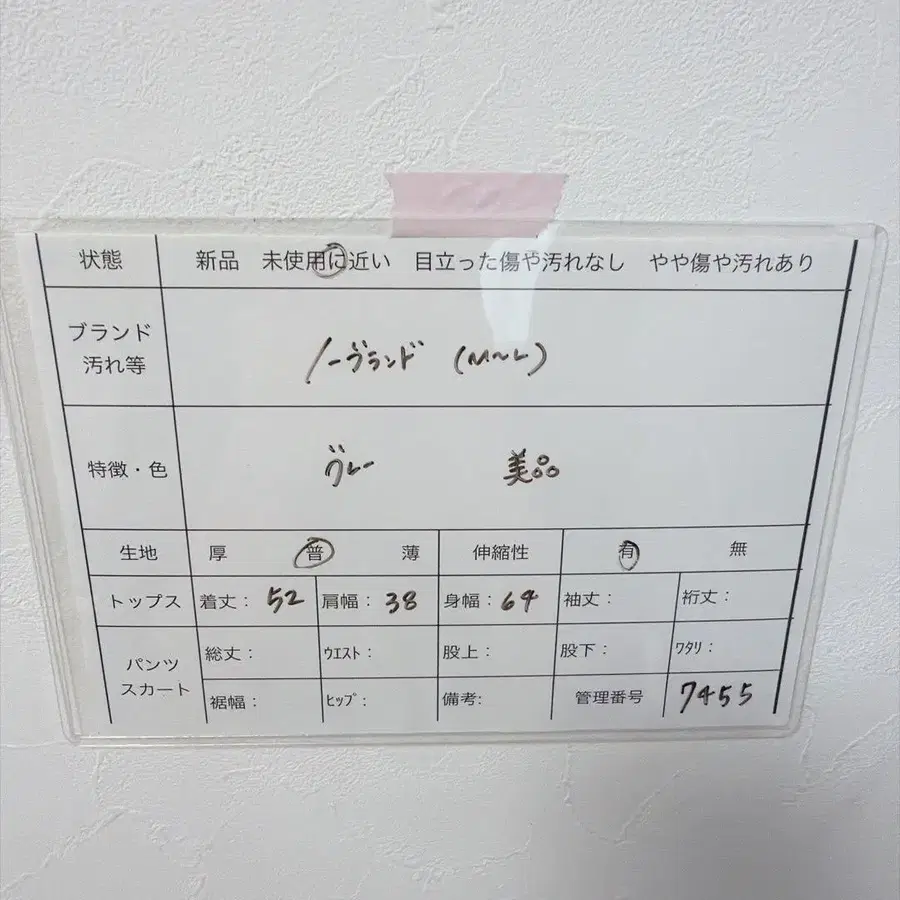 状態 新品 未使用に近い 目立った傷や汚れなし やや傷や汚れあり
ブランド
汚れ等
ノーブランド (M〜L)
特徴・色 グレー 美品
生地 厚 普 薄 伸縮性 有 無
トップス 着丈: 52 肩幅: 38 身幅: 64 袖丈: 裄丈:
パンツ
スカート
総丈: ウエスト: 股上: 股下: ワタリ:
裾幅: ヒップ: 備考: 管理番号 7455